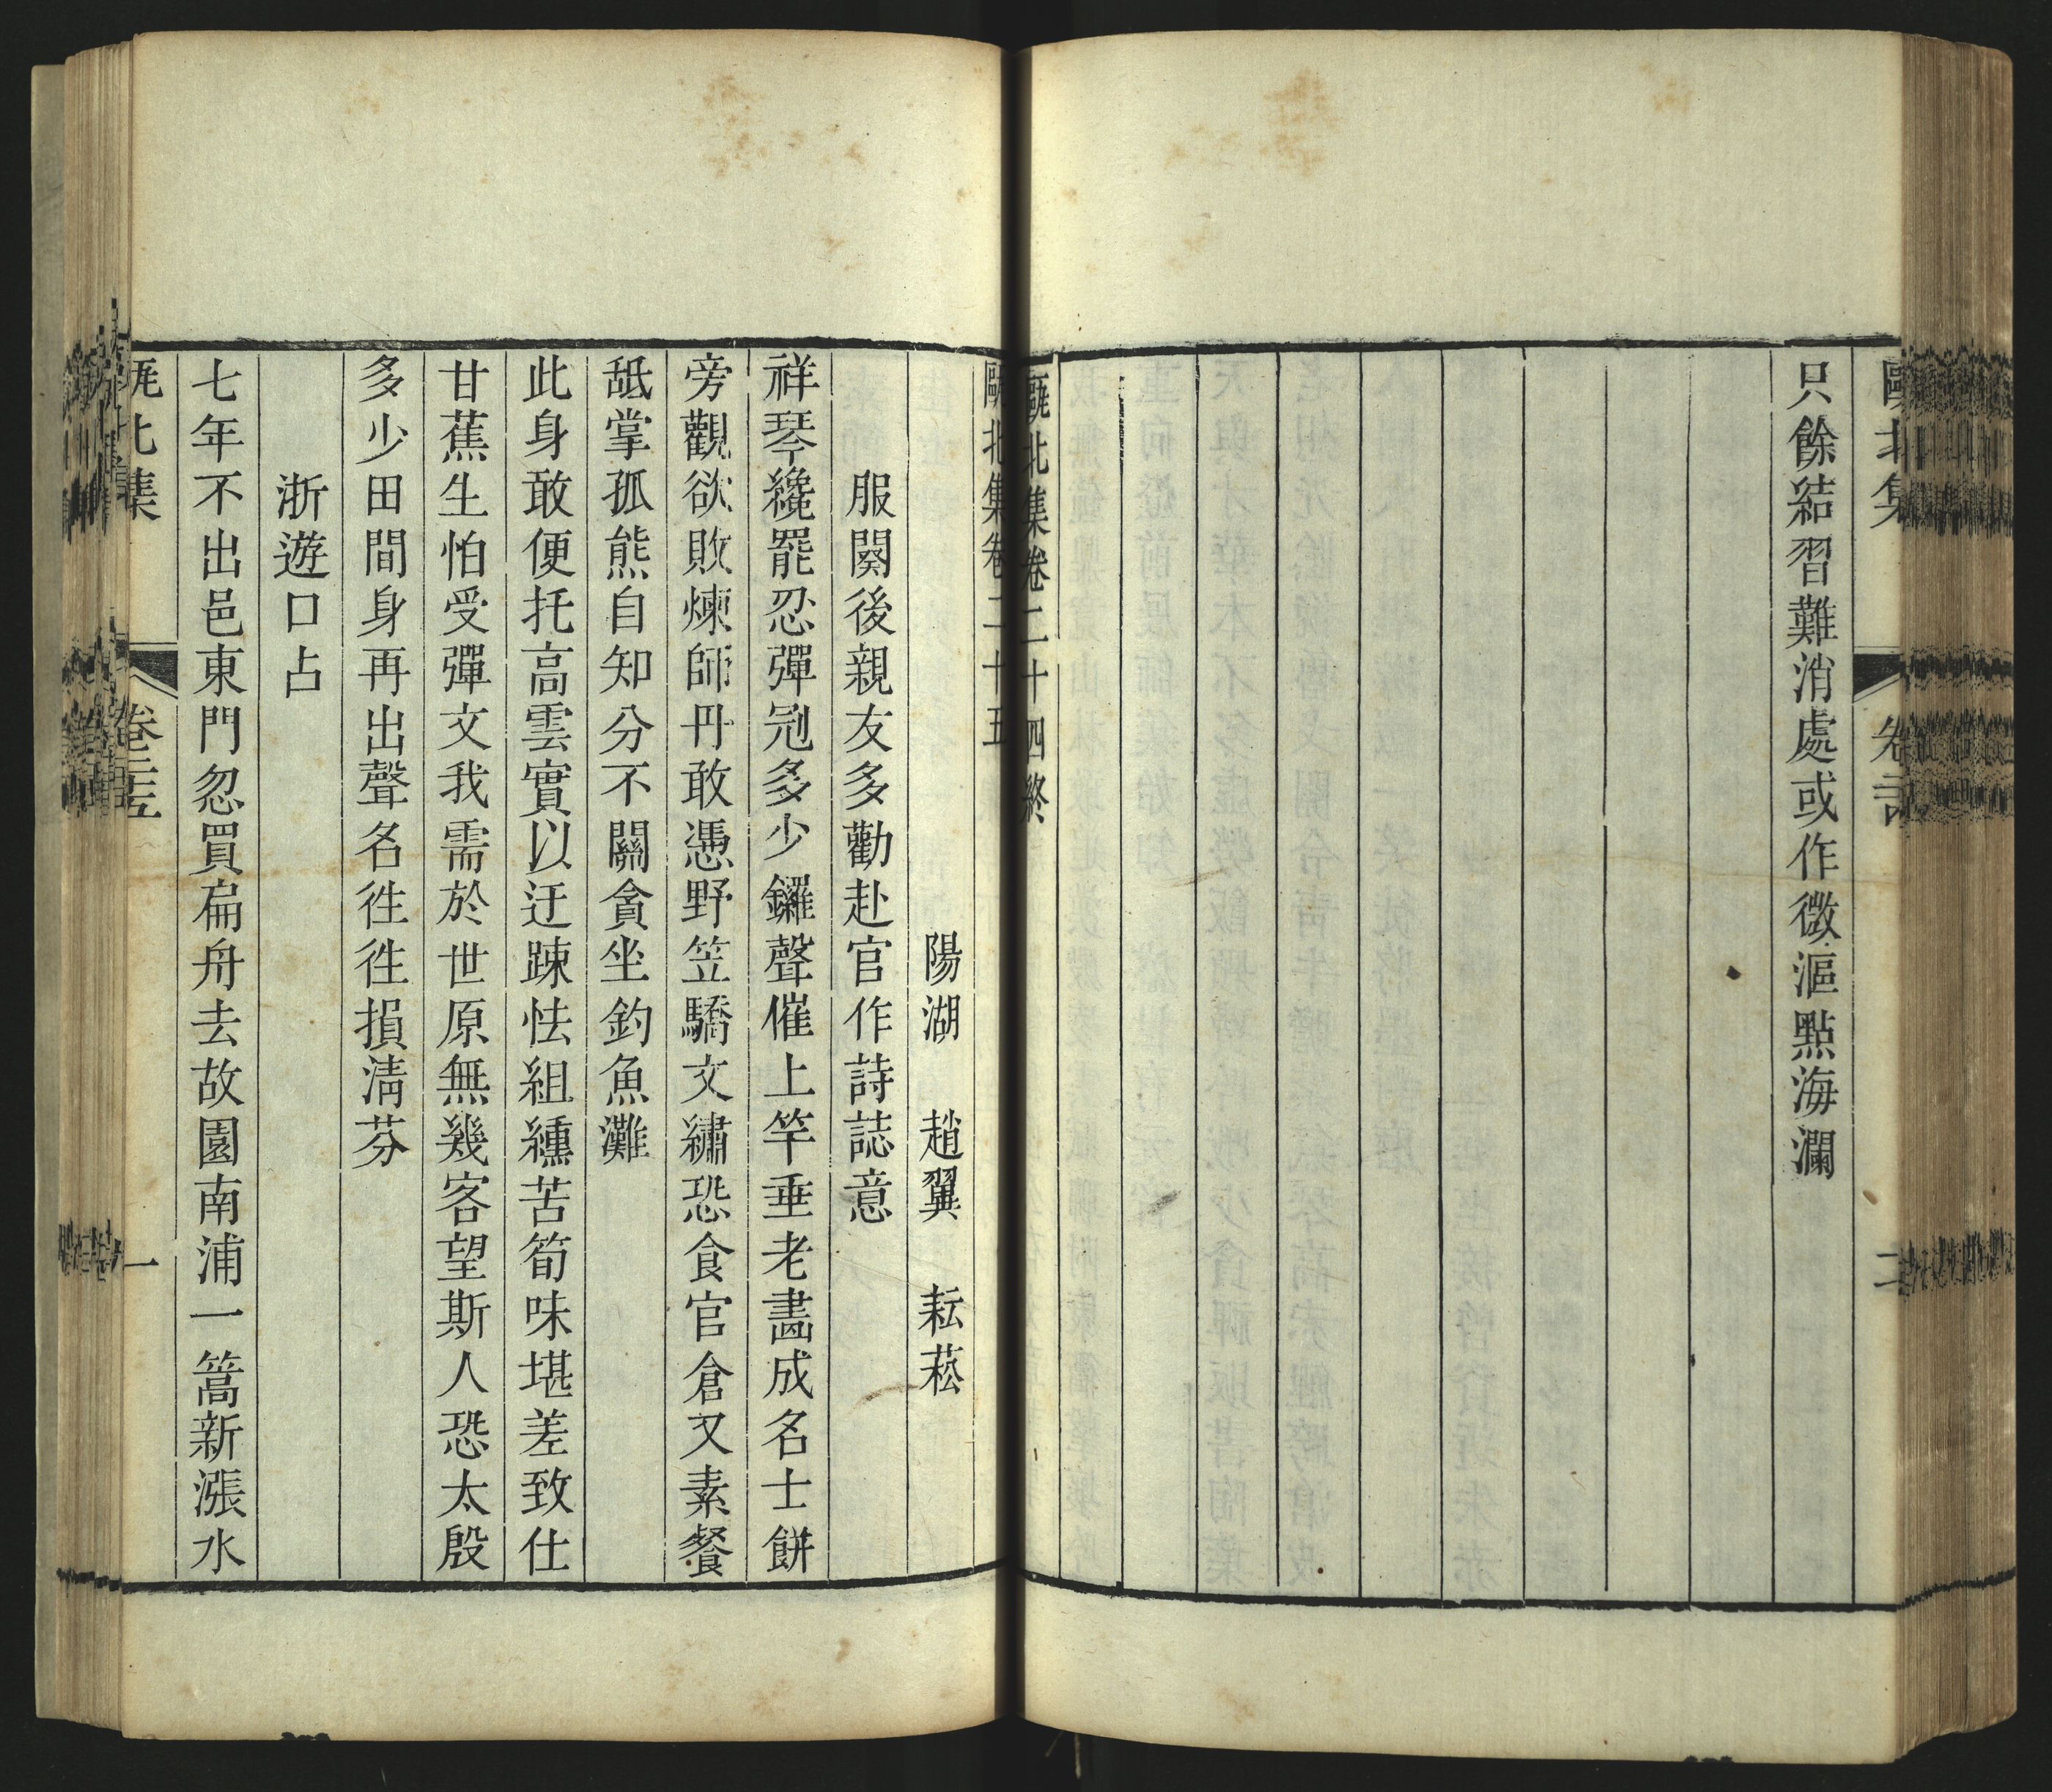 只餘結習難消處或作微漚點海瀾
甌北集卷二十四終
甌北集卷二十五
陽湖 趙翼 耘菘
服闋後親友多勸赴官作詩誌意
祥琴纔罷忍彈冠多少鑼聲催上竿垂老畵成名士餅
旁觀欲敗煉師丹敢憑野笠驕文繡恐食官倉又素餐
舐掌孤熊自知分不關貪坐釣魚灘
此身敢便托高雲實以迂踈怯組纁苦筍味堪差致仕
甘蕉生怕受彈文我需於世原無幾客望斯人恐太殷
多少田間身再出聲名徃徃損淸芬
浙遊口占
七年不出邑東門忽買扁舟去故園南浦一篙新漲水
甌北集 卷二十五 一